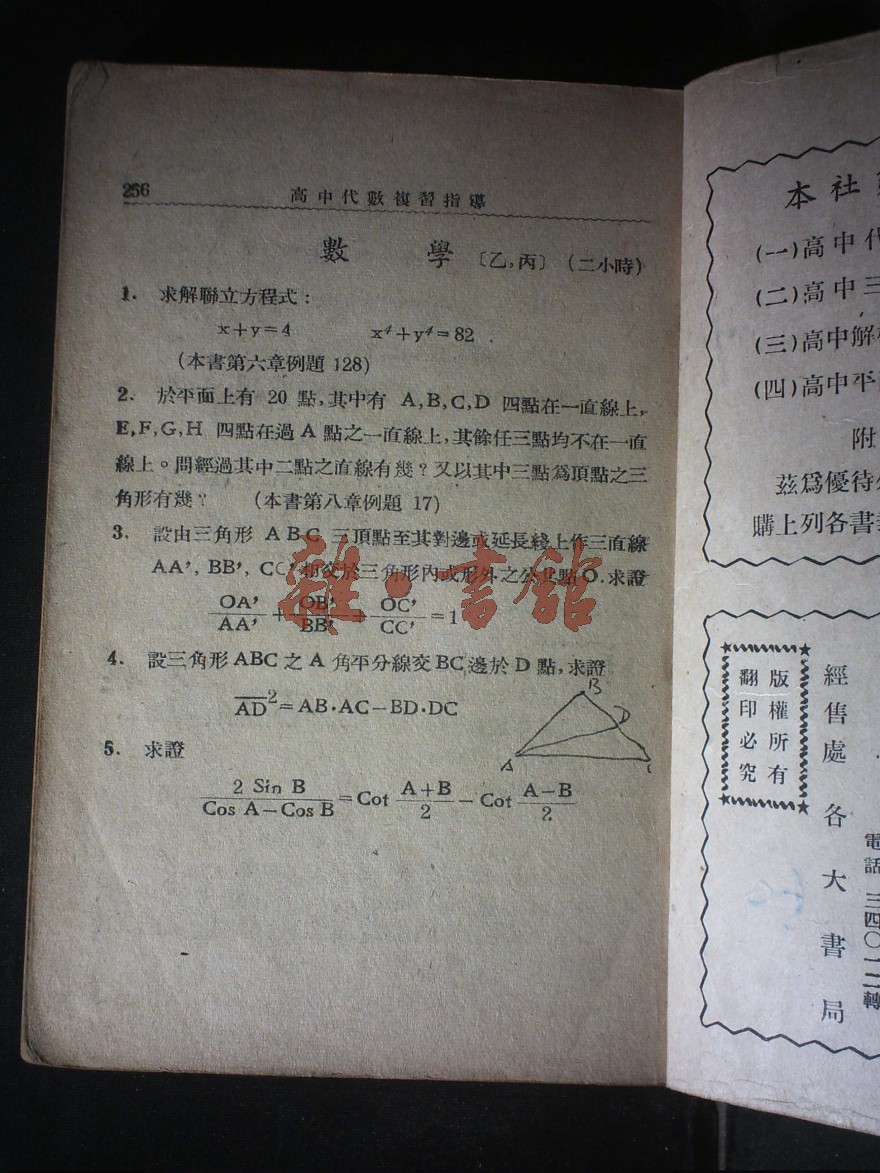 256
高中代數複習指導
數 學 〔乙,丙〕 (二小時)
1. 求解聯立方程式:
x+y=4 x⁴+y⁴=82
(本書第六章例題 128)
2. 於平面上有 20 點,其中有 A,B,C,D 四點在一直線上,
E,F,G,H 四點在過 A 點之一直線上,其餘任三點均不在一直
線上。問經過其中二點之直線有幾? 又以其中三點爲頂點之三
角形有幾? (本書第八章例題 17)
3. 設由三角形 ABC 三頂點至其對邊或延長綫上作三直線
AA', BB', CC' 相交於三角形內或形外之公共點O.求證
OA'/AA' + OB'/BB' + OC'/CC' = 1
4. 設三角形ABC之A角平分線交BC邊於D點,求證
AD² = AB·AC−BD·DC
B
D
A
5. 求證
2 Sin B/Cos A−Cos B = Cot A+B/2 − Cot A−B/2
雜·書館
本社
(一)高中代
(二)高中三
(三)高中解
(四)高中平
附
茲爲優待
購上列各書
版權所有
翻印必究
經售處各大書局
電話 三四〇一二轉